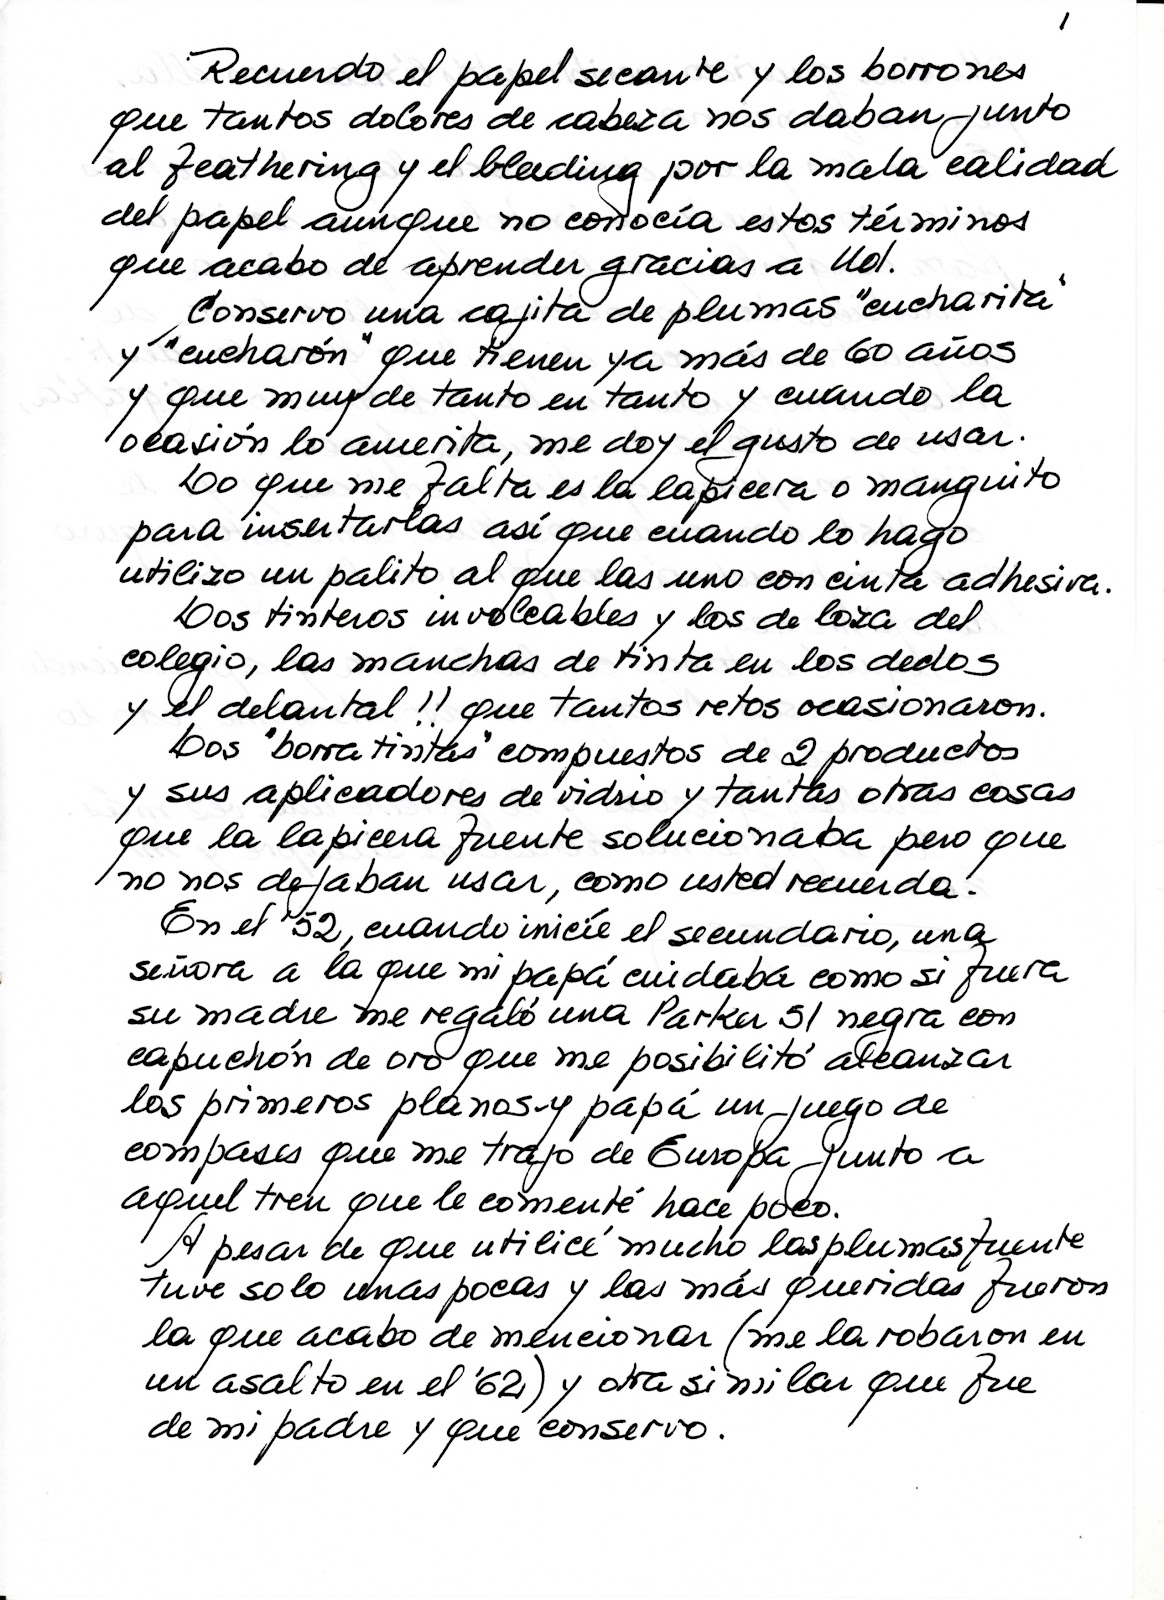 1
Recuerdo el papel secante y los borrones
que tantos dolores de cabeza nos daban junto
al feathering y el bleeding por la mala calidad
del papel aunque no conocía estos términos
que acabo de aprender gracias a Ud.
Conservo una cajita de plumas "cucharita"
y "cucharón" que tienen ya más de 60 años
y que muy de tanto en tanto y cuando la
ocasión lo amerita, me doy el gusto de usar.
Lo que me falta es la lapicera o manguito
para insertarlas así que cuando lo hago
utilizo un palito al que las uno con cinta adhesiva.
Los tinteros involcables y los de loza del
colegio, las manchas de tinta en los dedos
y el delantal!! que tantos retos ocasionaron.
Los "borratintas" compuestos de 2 productos
y sus aplicadores de vidrio y tantas otras cosas
que la lapicera fuente solucionaba pero que
no nos dejaban usar, como usted recuerda.
En el '52, cuando inicíe el secundario, una
señora a la que mi papá cuidaba como si fuera
su madre me regaló una Parker 51 negra con
capuchón de oro que me posibilitó alcanzar
los primeros planos y papá un juego de
compases que me trajo de Europa junto a
aquel tren que le comenté hace poco.
A pesar de que utilicé mucho las plumas fuente
tuve solo unas pocas y las más queridas fueron
la que acabo de mencionar (me la robaron en
un asalto en el '62) y otra similar que fue
de mi padre y que conservo.